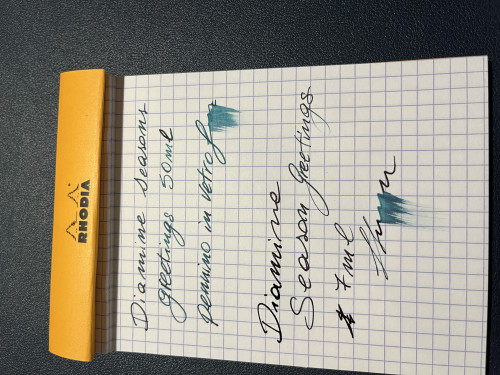 RHODIA
Diamine Seasons
greetings 50ml
pennino in vetro
Diamine
Season greetings
7ml